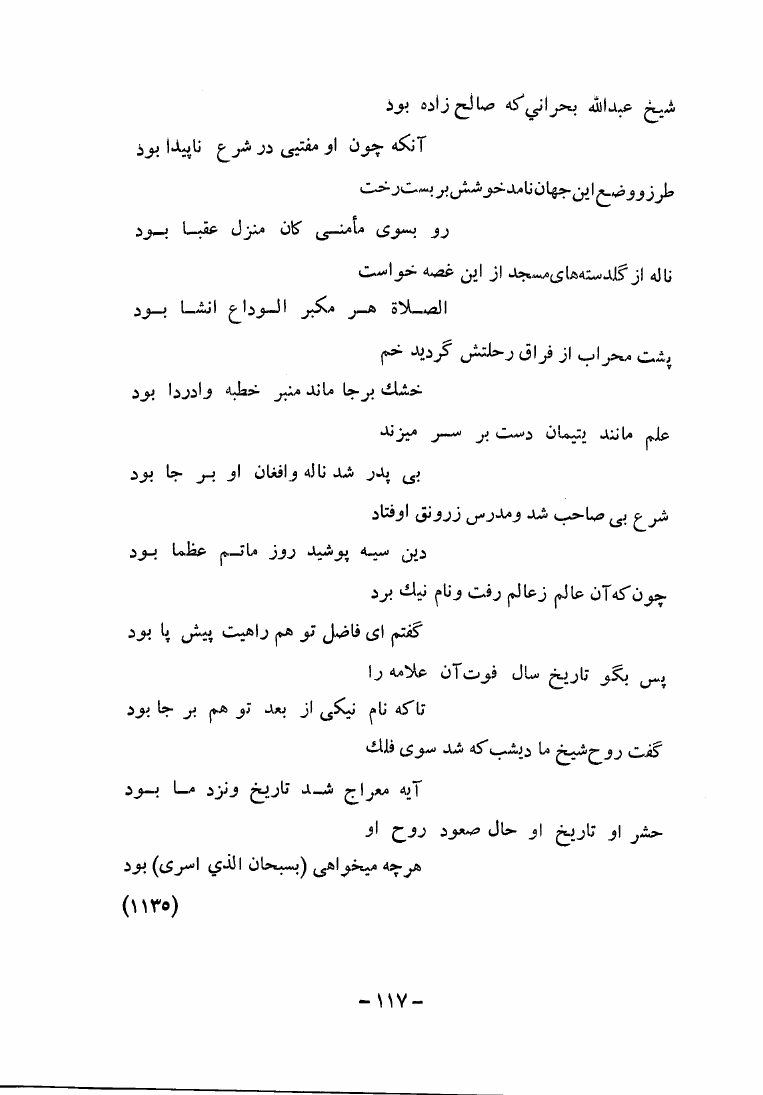 شيخ عبدالله بحراني كه صالح زاده بود
آنكه چون او مفتيى در شرع ناپيدا بود
طرزووضع اين جهان نامدخوشش بر بست رخت
رو بسوى مأمنــى كان منزل عقبــا بــود
ناله از گلدسته هاى مسجد از اين غصه خواست
الصــلاة هــر مكبر الــوداع انشــا بــود
پشت محراب از فراق رحلتش گرديد خم
خشك برجا ماند منبر خطبه وادردا بود
علم مانند يتيمان دست بر ســر ميزند
بى پدر شد ناله وافغان او بــر جا بود
شرع بى صاحب شد ومدرس زرونق اوفتاد
دين سيــه پوشيد روز ماتــم عظما بــود
چون كه آن عالم زعالم رفت ونام نيك برد
گفتم اى فاضل تو هم راهيت پيش پا بود
پس بگو تاريخ سال فوت آن علامه را
تاكه نام نيكى از بعد تو هم بر جا بود
گفت روح شيخ ما ديشب كه شد سوى فلك
آيه معراج شــد تاريخ ونزد مــا بــود
حشر او تاريخ او حال صعود روح او
هرچه ميخواهى (بسبحان الذي اسرى) بود
(١١٣٥)
– ١١٧ –